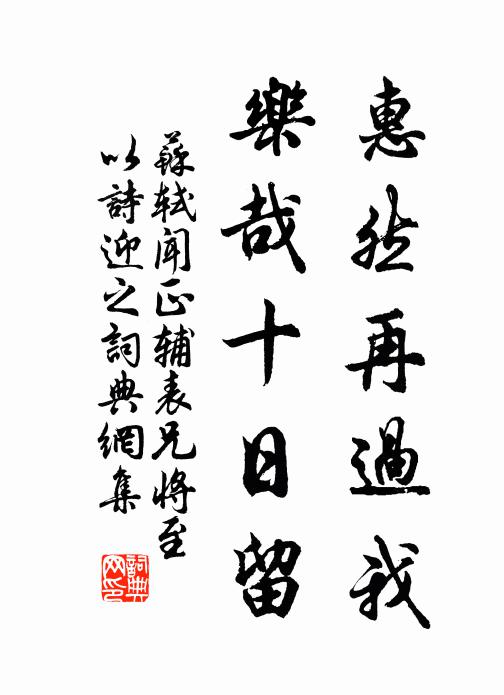 惠然再過我
樂哉十日留
蘇軾聞正輔表兄將至
以詩迎之詞典網集
詞典
网印